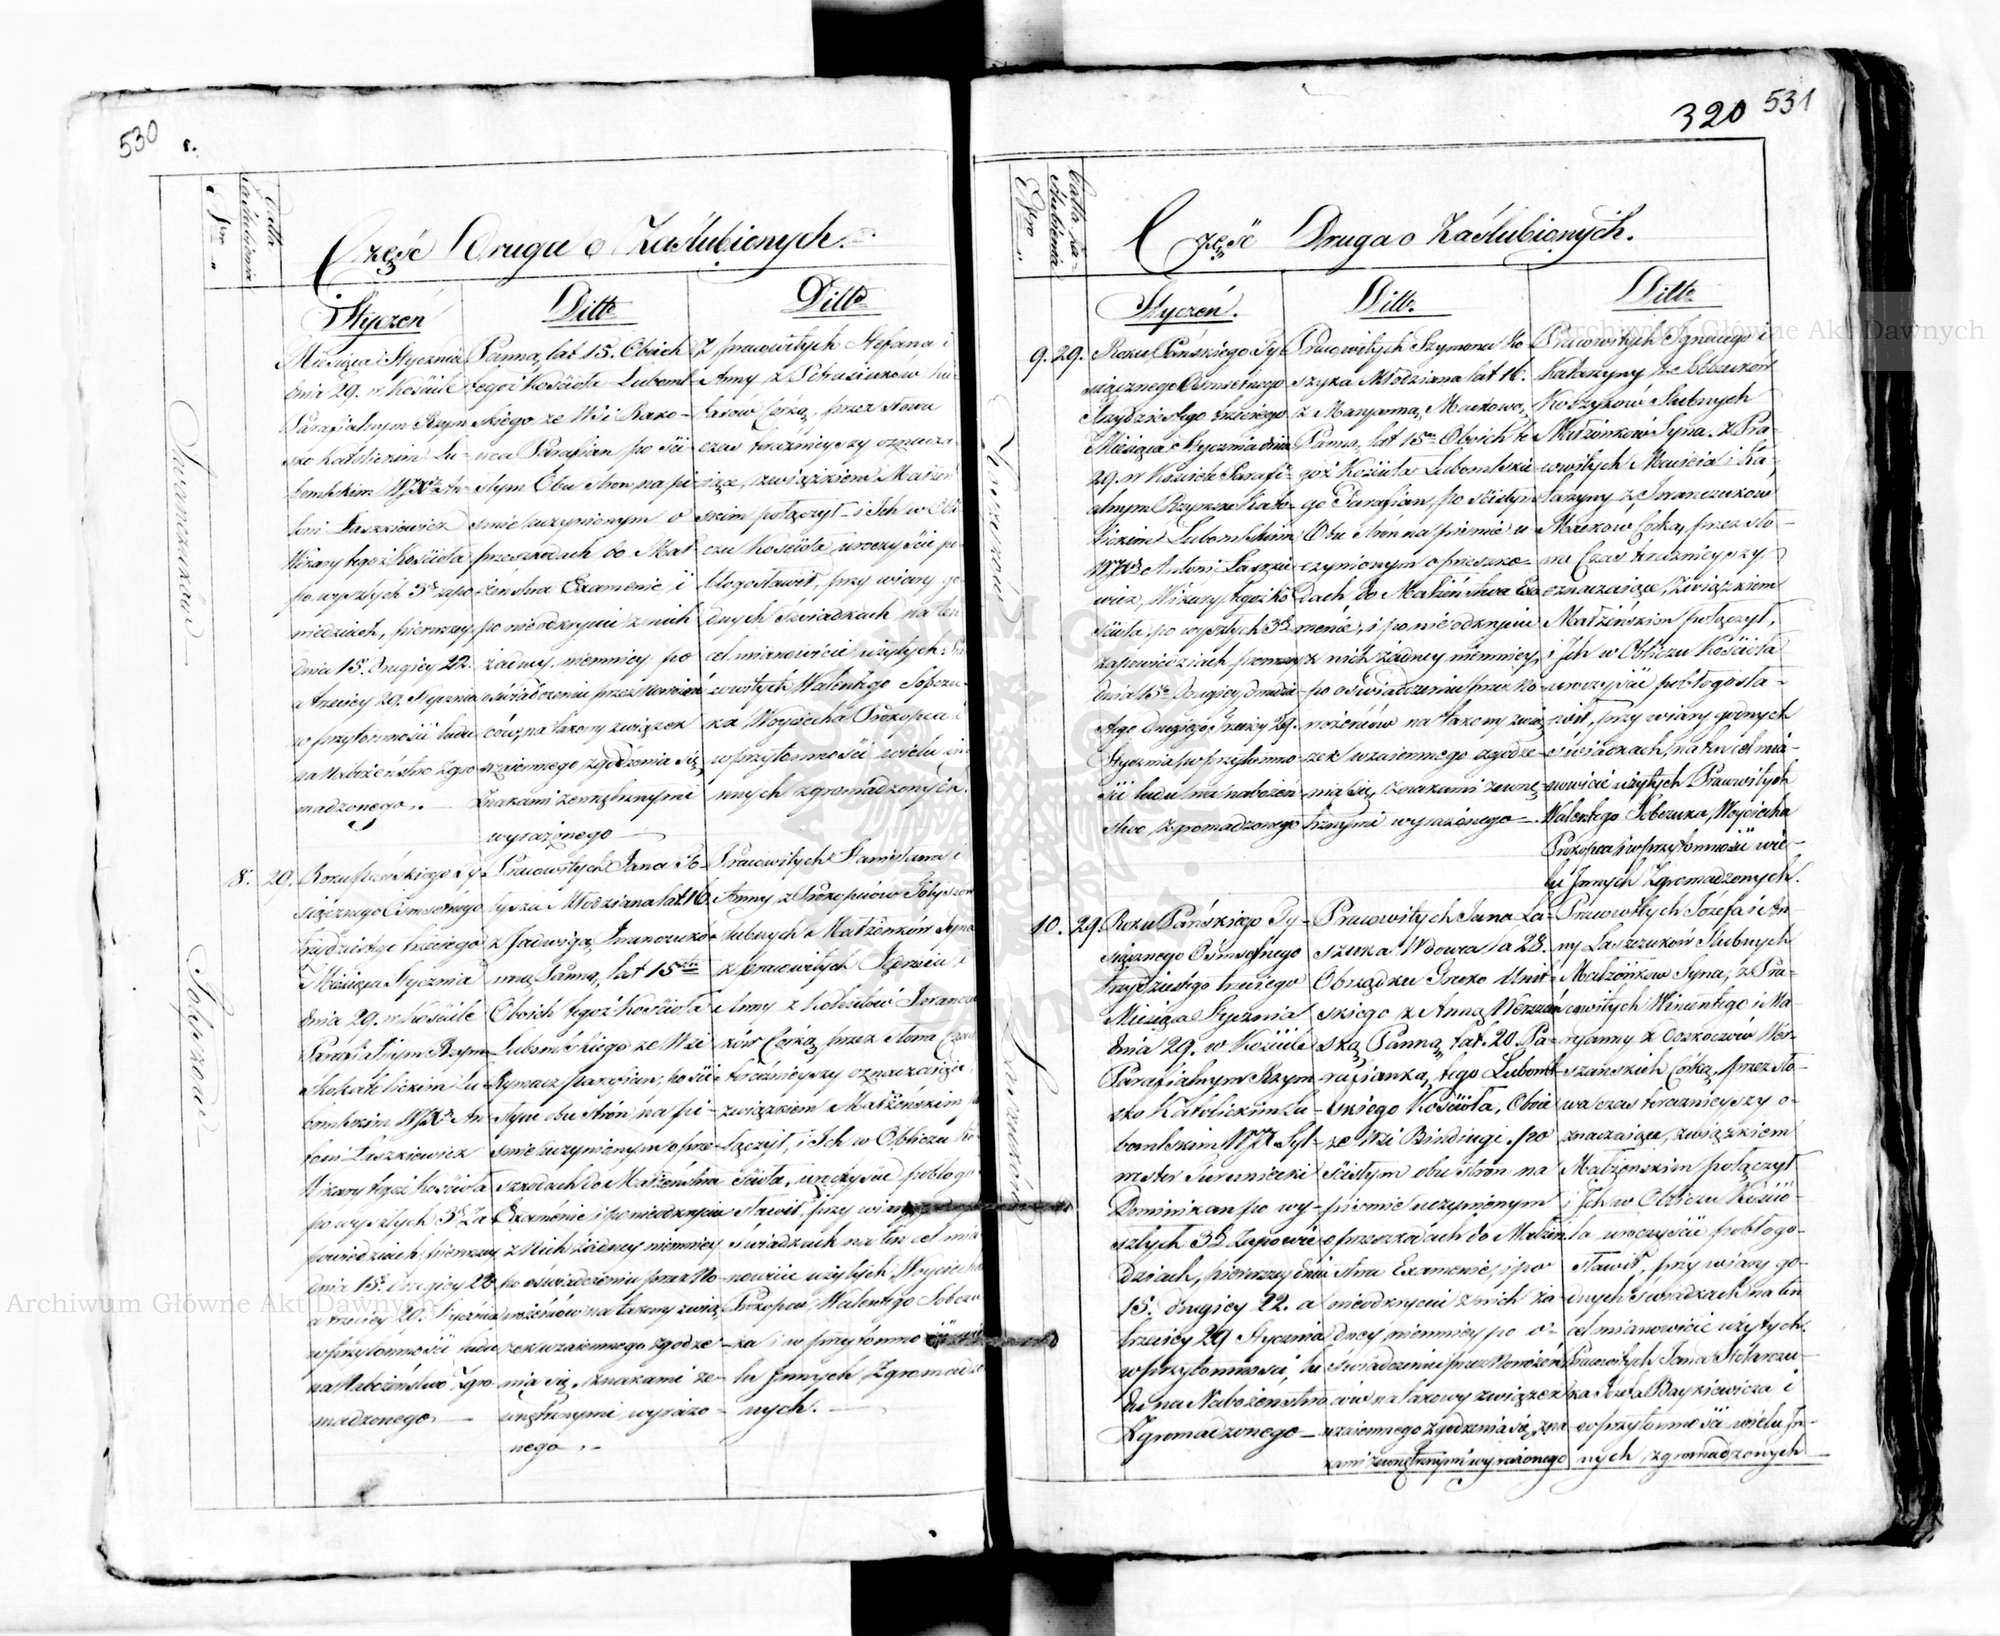 530
Nro
Datta Zaślubienia
Część Druga o Zaślubionych.
Styczeń
Miesiąca Stycznia
dnia 29. w Kościele
Parafialnym Rzym-
sko Katolickim Lu-
bomlskim WJX An-
toni Laszkiewicz
Wikary tegoż Kościoła
po wyszłych 3ch zapo
wiedziach, pierwszy
dnia 15. drugiey 22.
a trzeciey 29. Stycznia
w przytomności ludu
na Nabożeństwo Zgro
madzonego.
Ditto
Panną, lat 15. Oboich
tegoż Kościoła Luboml
skiego ze Wsi
Parafian po ści-
słym Obu stron na pi
śmie uczynionym o
przeszkodach do Mał
żeństwa Examenie i
po nieodkryciu z nich
żadney niemniey po
oświadczeniu przez Nowożeń
ców, na takowy związek
wzaiemnego zgodzenia się
Znakami zewnętrznymi
wyrażonego
Ditto
z pracowitych Stefana i
Anny z
Córką, przez słowa
czas teraznieyszy oznacza
iące, związkiem Małżeń
skim połączył i Ich w Obli
czu Kościoła uroczyście po
błogosławił, przy wiary go
dnych świadkach na ten
cel mianowicie użytych Pra
cowitych Walentego Sobczu-
ka Woyciecha Prokopca i
w przytomności wielu in
nych zgromadzonych.
Iwanczuków
8. 29. Roku Pańskiego Ty-
siącznego Ośmsetnego
trzydziestego trzeciego
Miesiąca Stycznia
dnia 29. w Kościele
Parafialnym Rzym-
sko Katolickim Lu
bomlskim WJX An
toni Laszkiewicz
Wikary tegoż Kościoła
po wyszłych 3ch Za
powiedziach, pierwszy
dnia 15. drugiey 22
a trzeciey 29. Stycznia
w przytomności ludu
na Nabożeństwo Zgro
madzonego
Pracowitych Jana
Młodziana lat 16
z Jadwigą, Iwanczuko
wną Panną, lat 15
Oboich tegoż Kościoła
Lubomlskiego ze Wsi
Rymacz parafian, po ści
słym obu stron na pi-
śmie uczynionym o prze-
szkodach do Małżeństwa
Examenie i po nieodkryciu
z nich żadney niemniey
po oświadczeniu przez No-
wożeńców na takowy zwią
zek wzaiemnego zgodze-
nia się, znakami ze-
wnętrznymi wyrażo-
nego
Pracowitych Stanisława i
Anny z Prokopców
ślubnych Małżonków Syna
z pracowitych Jędrzeia i
Anny z Iwancz
ków Córką, przez słowa Czas
teraznieyszy oznaczaiące,
związkiem Małżeńskim po
łączył, i Ich w Obliczu Ko
ścioła, uroczyście pobłogo
sławił, przy wiary
świadkach na ten cel mia
nowicie użytych, Woyciecha
Prokopca, Walentego Sobczu
ka i w przytomności
lu Innych Zgromadzo
nych.
320 531
Nro
Datta Zaślubienia
Część Druga o Zaślubionych.
Styczeń.
9. 29. Roku Pańskiego Ty-
siącznego Ośmsetnego
Trzydziestego trzeciego
Miesiąca Stycznia dnia
29. w Kościele Parafi-
alnym Rzymsko Kato-
lickim Lubomlskim
WJX Antoni Laszkie
wicz, Wikary tegoż Ko
ścioła, po wyszłych 3ch
zapowiedziach pierwszey
dnia 15. drugiey dwudzie
stego drugiego, trzeciey 29.
Stycznia, w przytomno
ści ludu na nabożeń
stwo Zgromadzonego
Ditto.
Pracowitych Szymona Ko
szyka Młodziana lat 16.
z Maryanną, Maćkową
Panną, lat 15. Oboich te
goż Kościoła Lubomlskie
go Parafian, po ścisłym
Obu stron na piśmie u
czynionym o przeszko-
dach do Małżeństwa Exa
menie, i po nieodkryciu
z nich żadney niemniey,
po oświadczeniu przez No-
wożeńców na takowy zwią
zek wzaiemnego zgodze-
nia się, znakami zewnę
trznymi wyrażonego
Ditto
Pracowitych Ignacego i
Katarzyny z
Koszyków Ślubnych
Małżonków Syna. z Pra-
cowitych Macieia i Ka-
tarzyny z Iwanczuków
Maćków Córką, przez sło-
wa Czas teraznieyszy
oznaczaiące, Związkiem
Małżeńskim połączył,
i Ich w Obliczu Kościoła
uroczyście pobłogosła-
wił, przy wiary godnych
świadkach, na ten cel mia-
nowicie użytych Pracowitych
Walentego Sobczuka, Woyciecha
Prokopca i w przytomności wie-
lu Innych Zgromadzonych.
10. 29. Roku Pańskiego Ty-
siącznego Ośmsetnego
trzydziestego trzeciego
Miesiąca Stycznia
dnia 29. w Kościele
Parafialnym Rzym
sko Katolickim Lu-
bomlskim WJX Syl-
wester
Dominikan po wy-
szłych 3ch Zapowie-
dziach, pierwszy dnia
15. drugiey 22. a
trzeciey 29 Stycznia
w przytomności, lu
du na Nabożeństwo
Zgromadzonego
Pracowitych Jana La-
szuka Wdowca la 28.
Obrządku Greko Unit-
skiego z Anną
ską Panną, lat. 20. Pa-
rafianką, tego Lubomls-
skiego Kościoła, Oboie
ze Wsi Bindiugi. po
ścisłym obu stron na
piśmie uczynionym
o przeszkodach do Małżeń
stwa Examenie, i po
nieodkryciu z nich ża
dney niemniey po o-
świadczeniu przez Nowożeń
ców na takowy związek
wzaiemnego zgodzenia się, zna
kami zewnętrznymi wyrażonego
Pracowitych Józefa i An
ny Laszczuków Ślubnych
Małżonków Syna, z Pra-
cowitych Wincentego i Ma-
ryanny z
szańskich Córką, przez sło-
wa czas teraznieyszy o-
znaczaiące, związkiem
Małżeńskim połączył
i Ich w Obliczu Kościo-
ła uroczyście pobłogo-
sławił, przy wiary go-
dnych świadkach na ten
cel mianowicie użytych.
Pracowitych Jana
ka Józefa Baykiewicza i
w przytomności wielu In-
nych zgromadzonych
Archiwum Główne Akt Dawnych
Archiwum Główne Akt Dawnych